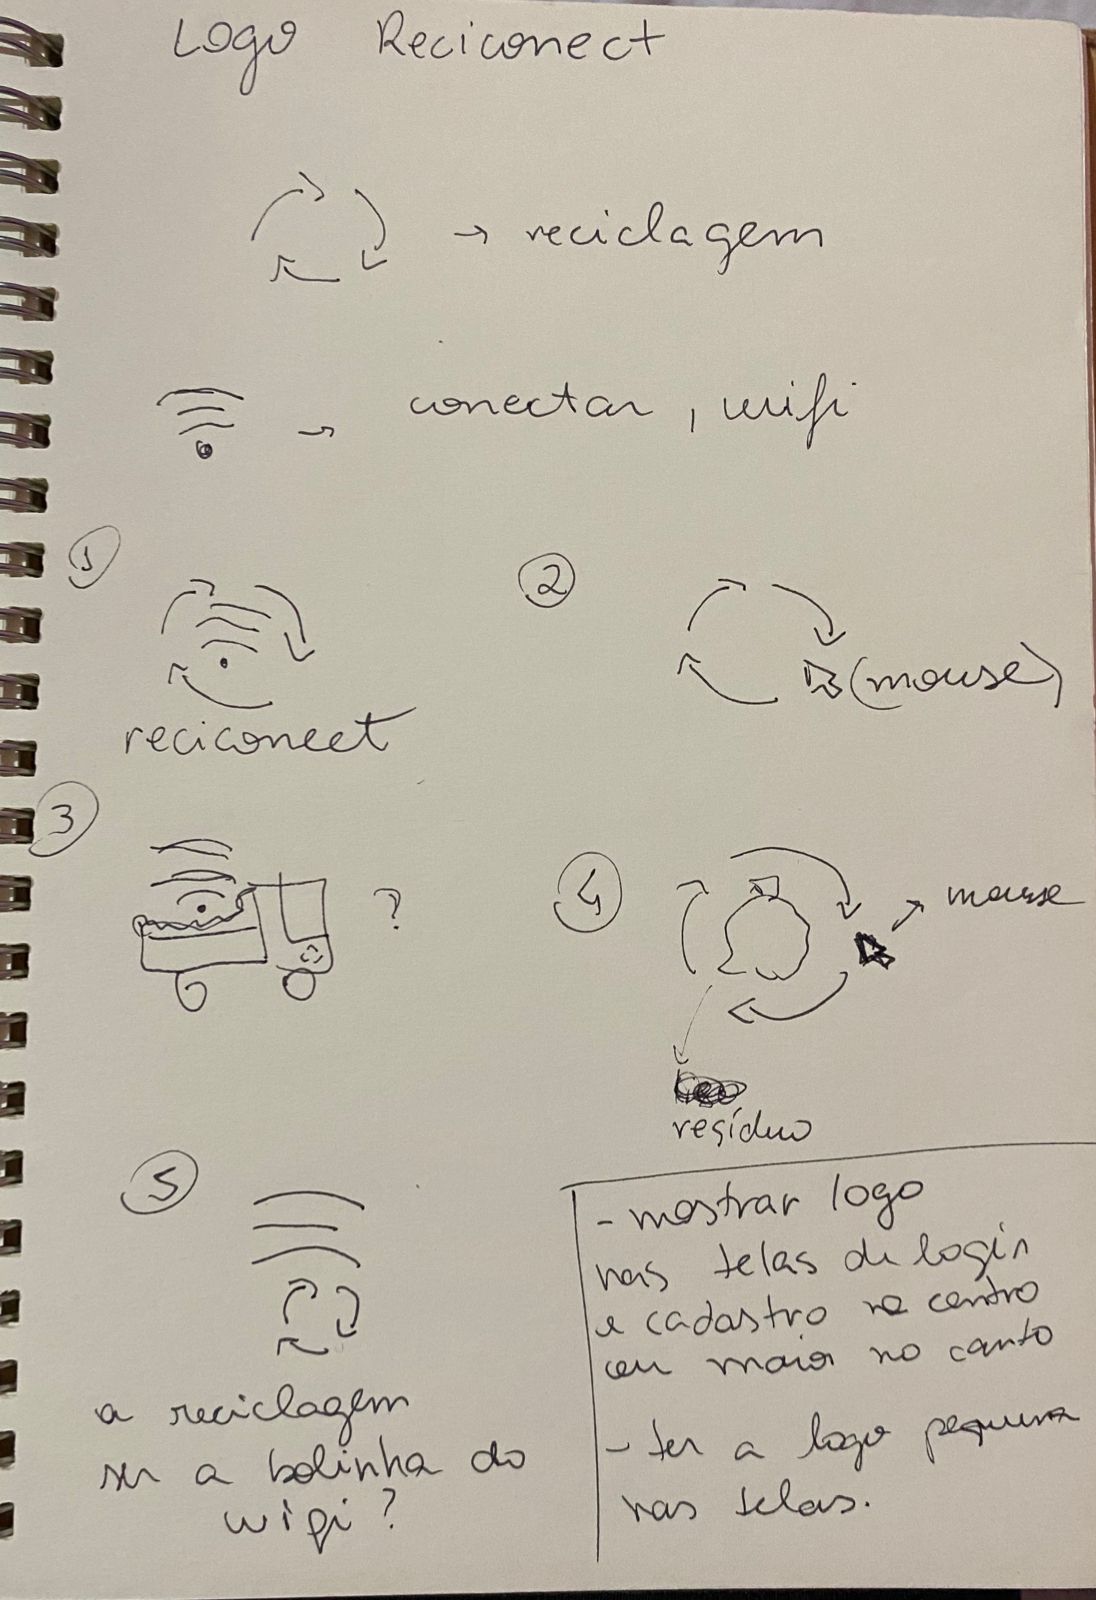 Logo Reciconect
→ reciclagem
→ conectar, wifi
1
reciconect
2
(mouse)
3
?
4
mouse
resíduo
5
a reciclagem
ser a bolinha do
wifi?
- mostrar logo
nas telas de login
e cadastro no centro
ou maior no canto
- ter a logo pequena
nas telas.